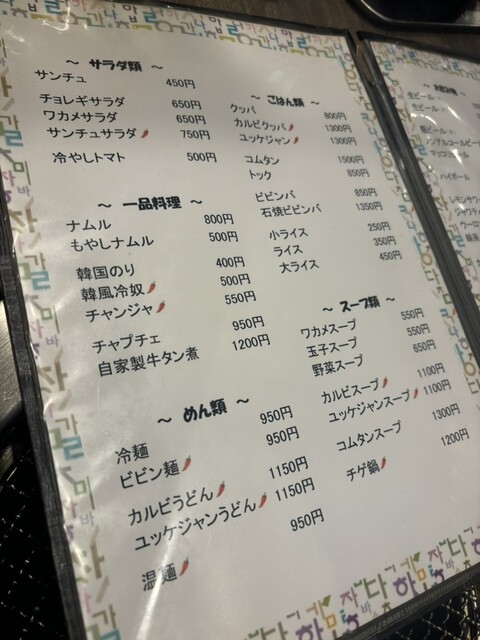 ～ サラダ類 ～
サンチュ 450円
チョレギサラダ 650円
ワカメサラダ 650円
サンチュサラダ 750円
冷やしトマト 500円
～ 一品料理 ～
ナムル 800円
もやしナムル 500円
韓国のり 400円
韓風冷奴 500円
チャンジャ 550円
チャプチェ 950円
自家製牛タン煮 1200円
～ めん類 ～
冷麺 950円
ビビン麺 950円
カルビうどん 1150円
ユッケジャンうどん 1150円
温麺 950円
～ ごはん類 ～
クッパ 800円
カルビクッパ 1300円
ユッケジャン 1300円
コムタン 1500円
トック 850円
ビビンバ 850円
石焼ビビンバ 1350円
小ライス 250円
ライス 350円
大ライス 450円
～ スープ類 ～
ワカメスープ 550円
玉子スープ 550円
野菜スープ 650円
カルビスープ 1100円
ユッケジャンスープ 1100円
コムタンスープ 1300円
チゲ鍋 1200円
生ビール
生ビール
瓶ビール
ノンアルコールビー
マッコリ
ハイボール
レモンサワ
ジャワティ
ウーロ